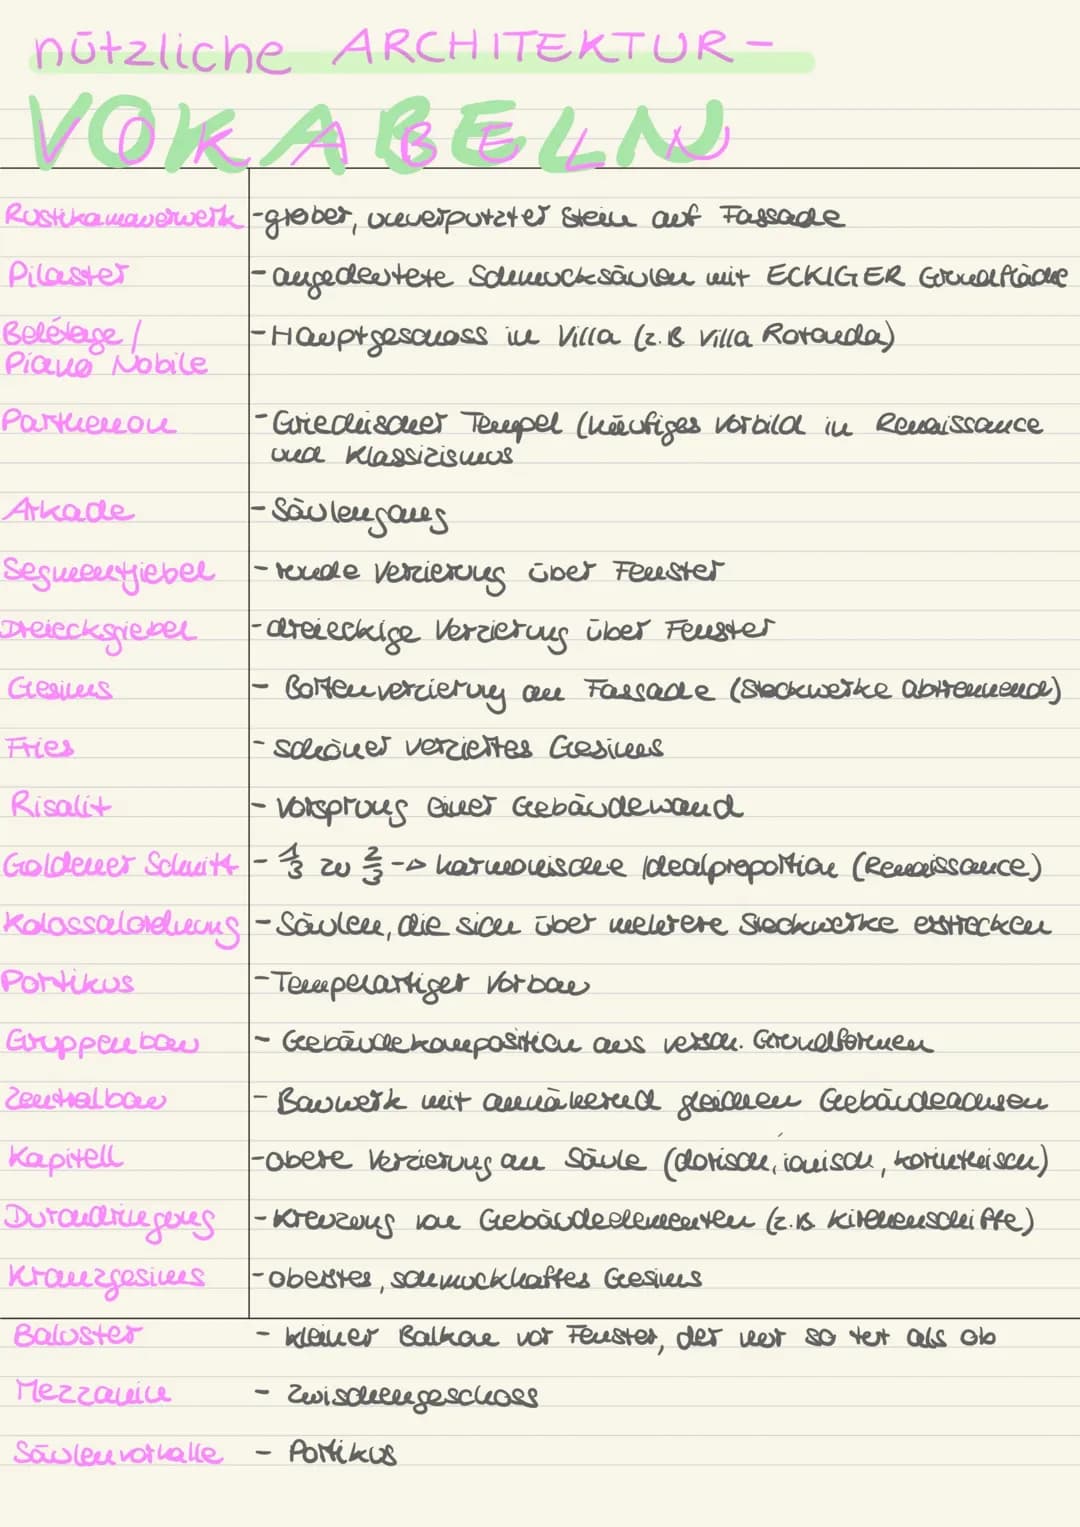 nützliche ARCHITEKTUR-
VOKABELN
Rustikamauerwerk - grober, unverputzter Stein auf Fassade
Pilaster - angedeutete Schmucksäulen mit ECKIGER Grundfläche
Belétage / - Hauptgeschoss in Villa (z.B Villa Rotonda)
Piano Nobile
Parthenon - Griechischer Tempel (häufiges Vorbild in Renaissance
und Klassizismus
Arkade - Säulengang
Segmentgiebel - runde Verzierung über Fenster
Dreiecksgiebel - dreieckige Verzierung über Fenster
Gesims - Bortenverzierung an Fassade (Stockwerke abtrennend)
Fries - schöner verziertes Gesims
Risalit - Vorsprung einer Gebäudewand
Goldener Schnitt - 1/3 zu 2/3 -> harmonische Idealproportion (Renaissance)
Kolossalordnung - Säulen, die sich über mehrere Stockwerke erstrecken
Portikus - Tempelartiger Vorbau
Gruppenbau - Gebäudekomposition aus versch. Grundformen
Zentralbau - Bauwerk mit annähernd gleichen Gebäudeachsen
Kapitell - obere Verzierung an Säule (dorisch, ionisch, korinthisch)
Durchdringung - Kreuzung von Gebäudeelementen (z.B. Kirchenschiffe)
Kranzgesims - oberstes, schmuckhaftes Gesims
Baluster - kleiner Balkon vor Fenster, der nur so tut als ob
Mezzanin - Zwischengeschoss
Säulenvorhalle - Portikus